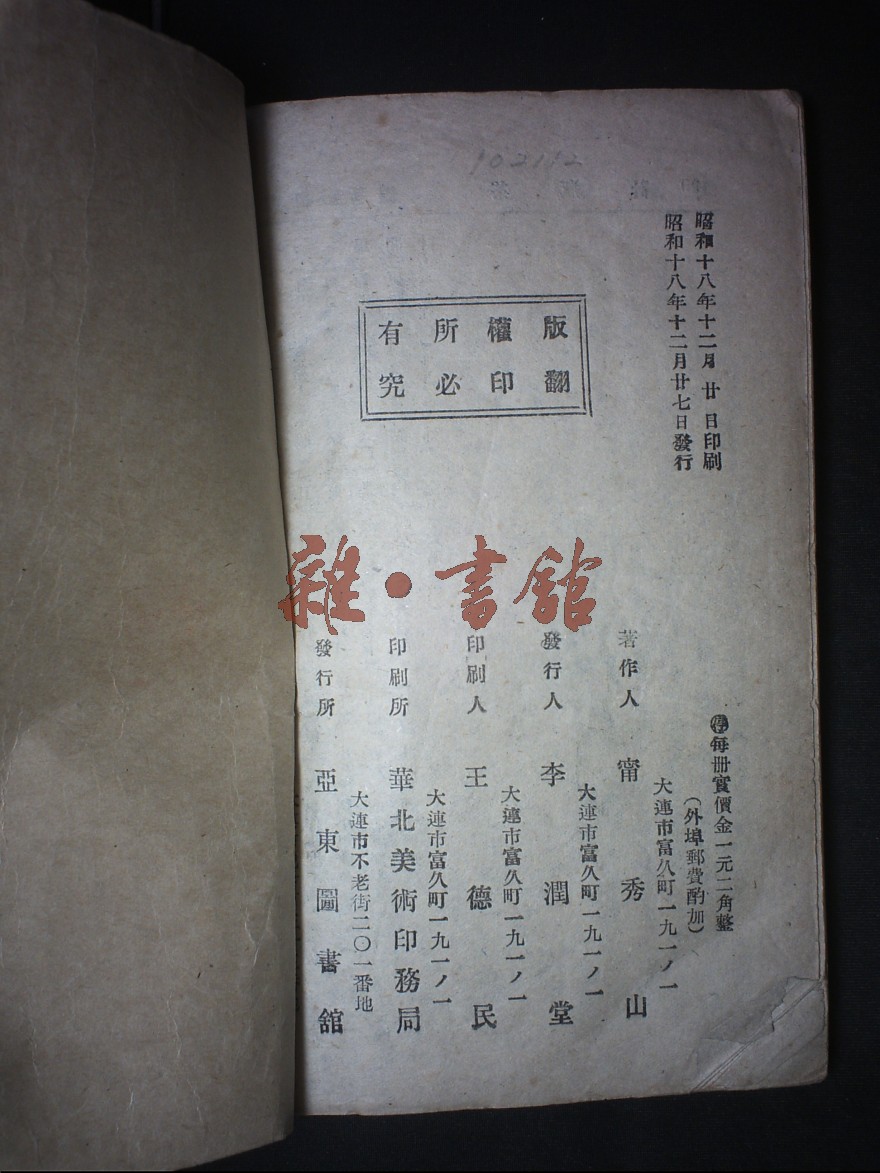 102112
昭和十八年十二月廿日印刷
昭和十八年十二月廿七日發行
版權所有
翻印必究
雜·書舘
㊝每冊實價金一元二角整
（外埠郵費酌加）
大連市富久町一九一ノ一
著作人 甯秀山
大連市富久町一九一ノ一
發行人 李潤堂
大連市富久町一九一ノ一
印刷人 王德民
大連市富久町一九一ノ一
印刷所 華北美術印務局
大連市不老街二〇一番地
發行所 亞東圖書舘